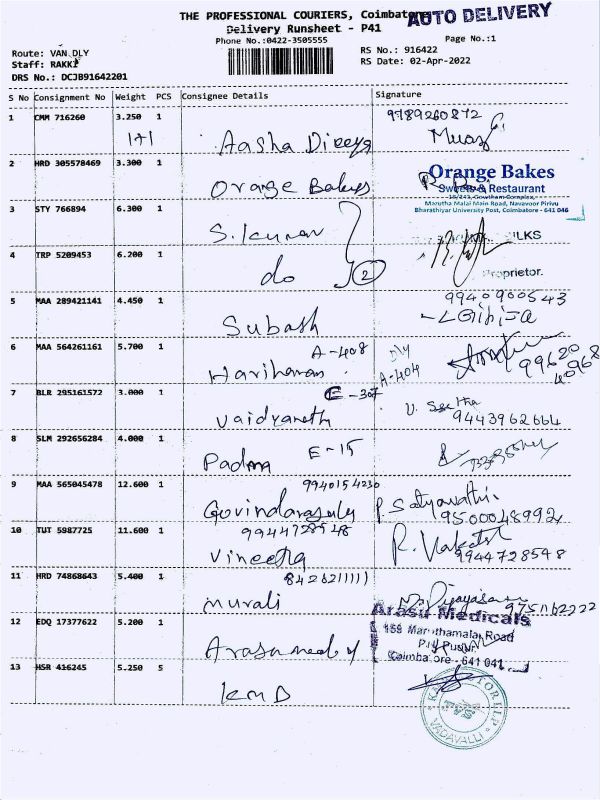 THE PROFESSIONAL COURIERS, Coimbatore
AUTO DELIVERY
Delivery Runsheet - P41
Phone No.:0422-3505555
Page No.:1
Route: VAN DLY
RS No.: 916422
Staff: RAKKI
RS Date: 02-Apr-2022
DRS No.: DCJB91642201
S No Consignment No Weight PCS Consignee Details Signature
1 CMM 716260 3.250 1 9789260872
1+1 Aasha Divya
2 HRD 305578469 3.300 1 Orange Bakes
Orange Bakes
Sweets & Restaurant
Marutha Malai Main Road, Navavoor Pirivu
Bharathiyar University Post, Coimbatore - 641 046
3 STY 766894 6.300 1 S. kumar
ILKS
4 TRP 5209453 6.200 1 do 2
Proprietor.
5 MAA 289421141 4.450 1 Subash 9940900543
6 MAA 564261161 5.700 1 A-408 Hariharan Dly A-404
99620
7 BLR 295161572 3.000 1 E-307 Vaidyaneth
9443962664
8 SLM 292656284 4.000 1 E-15 Padma
9 MAA 565045478 12.600 1 9940154230
Govindarasulu P. Satyavathi
9500048992
10 TUT 5987725 11.600 1 9944728548
Vineetha 9944728598
11 HRD 74868643 5.400 1 842621111
murali
9751162222
Arasu Medicals
12 EDQ 17377622 5.200 1
159 Maruthamalai Road
P.N.Pudur
Coimbatore - 641 041
13 HSR 416245 5.250 5 KMB
TVS
VADAVALLI